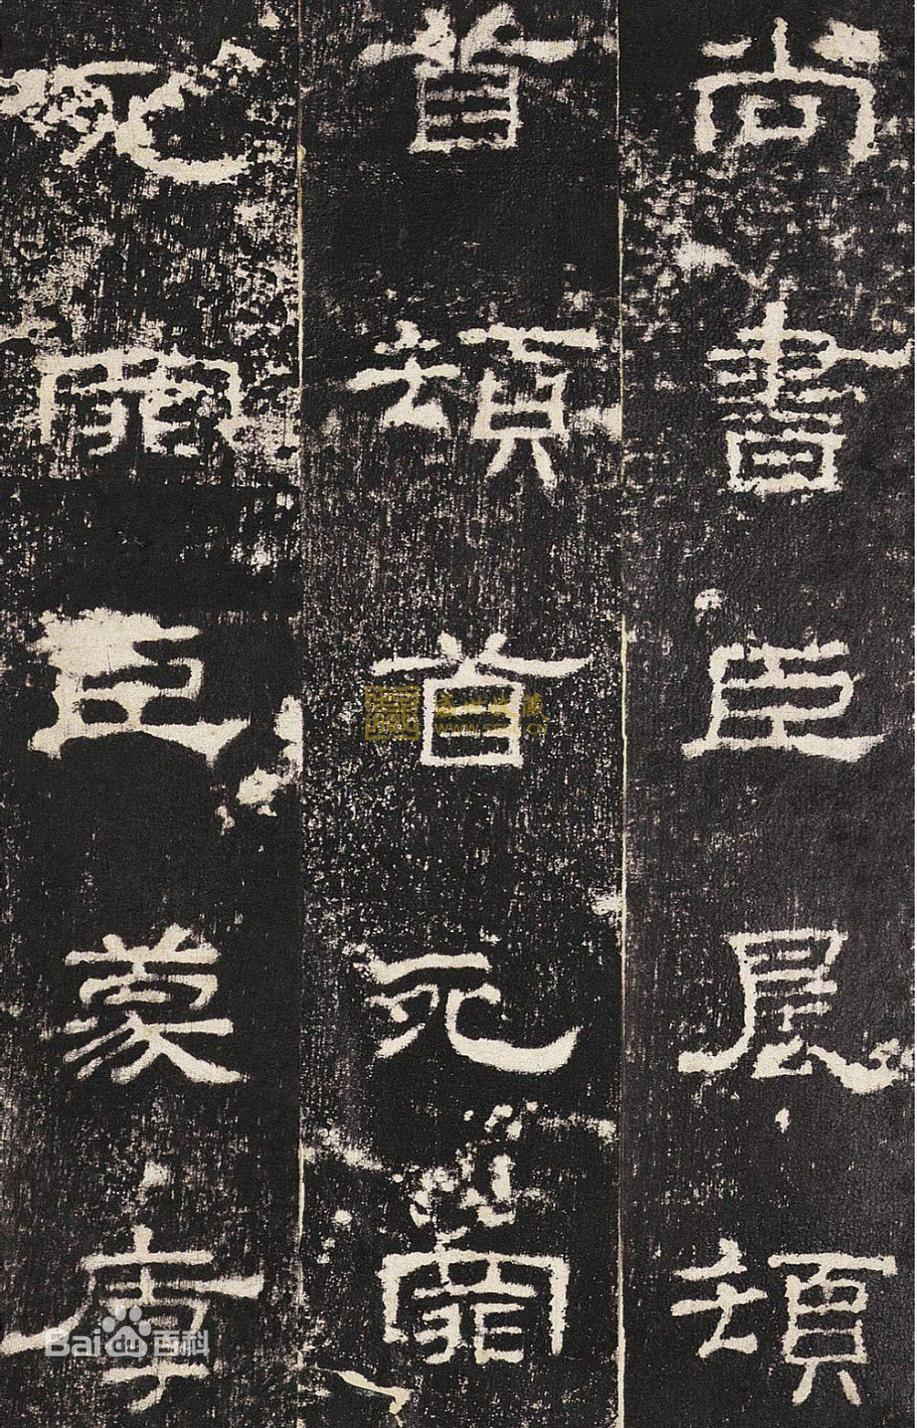 尚書臣晨頓
首頓首死罪
死罪臣蒙厚
Bai百科